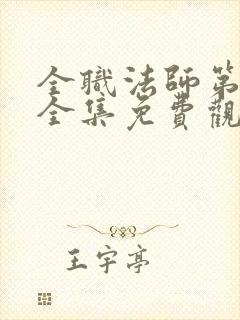 全職法師第
全集免費觀
王宇亭